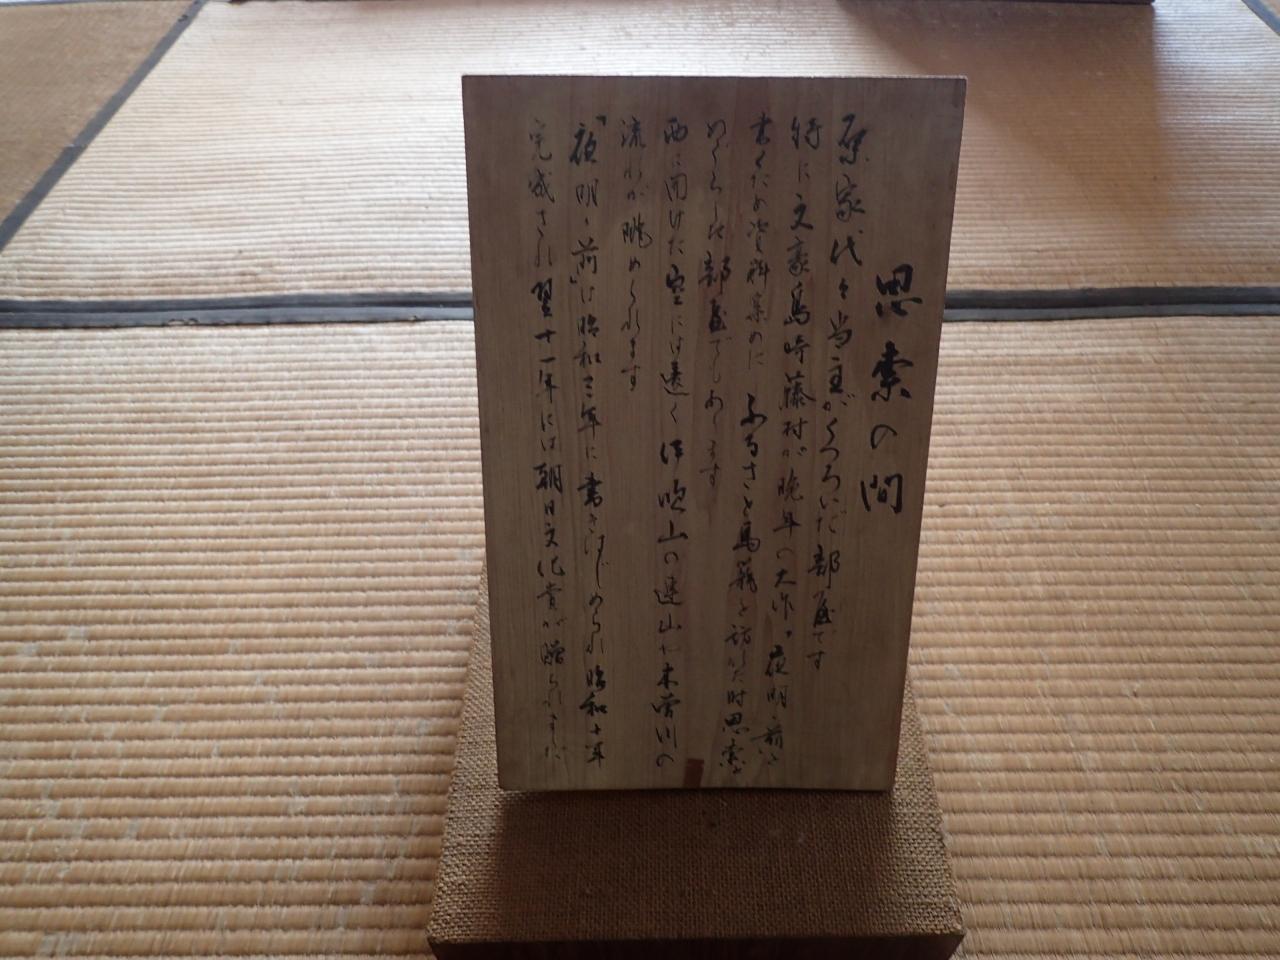 思索の間
原家代々当主がくつろいだ部屋です
特に文豪島崎藤村が晩年の大作「夜明け前」を
書くため資料集めに ふるさと馬籠を訪れた時思索を
めぐらした部屋でもあります
西に開けた空には遠く伊吹山の連山や木曽川の
流れが眺められます
「夜明け前」は昭和三年に書きはじめられ昭和十年
完成され 翌十一年には朝日文化賞が贈られました